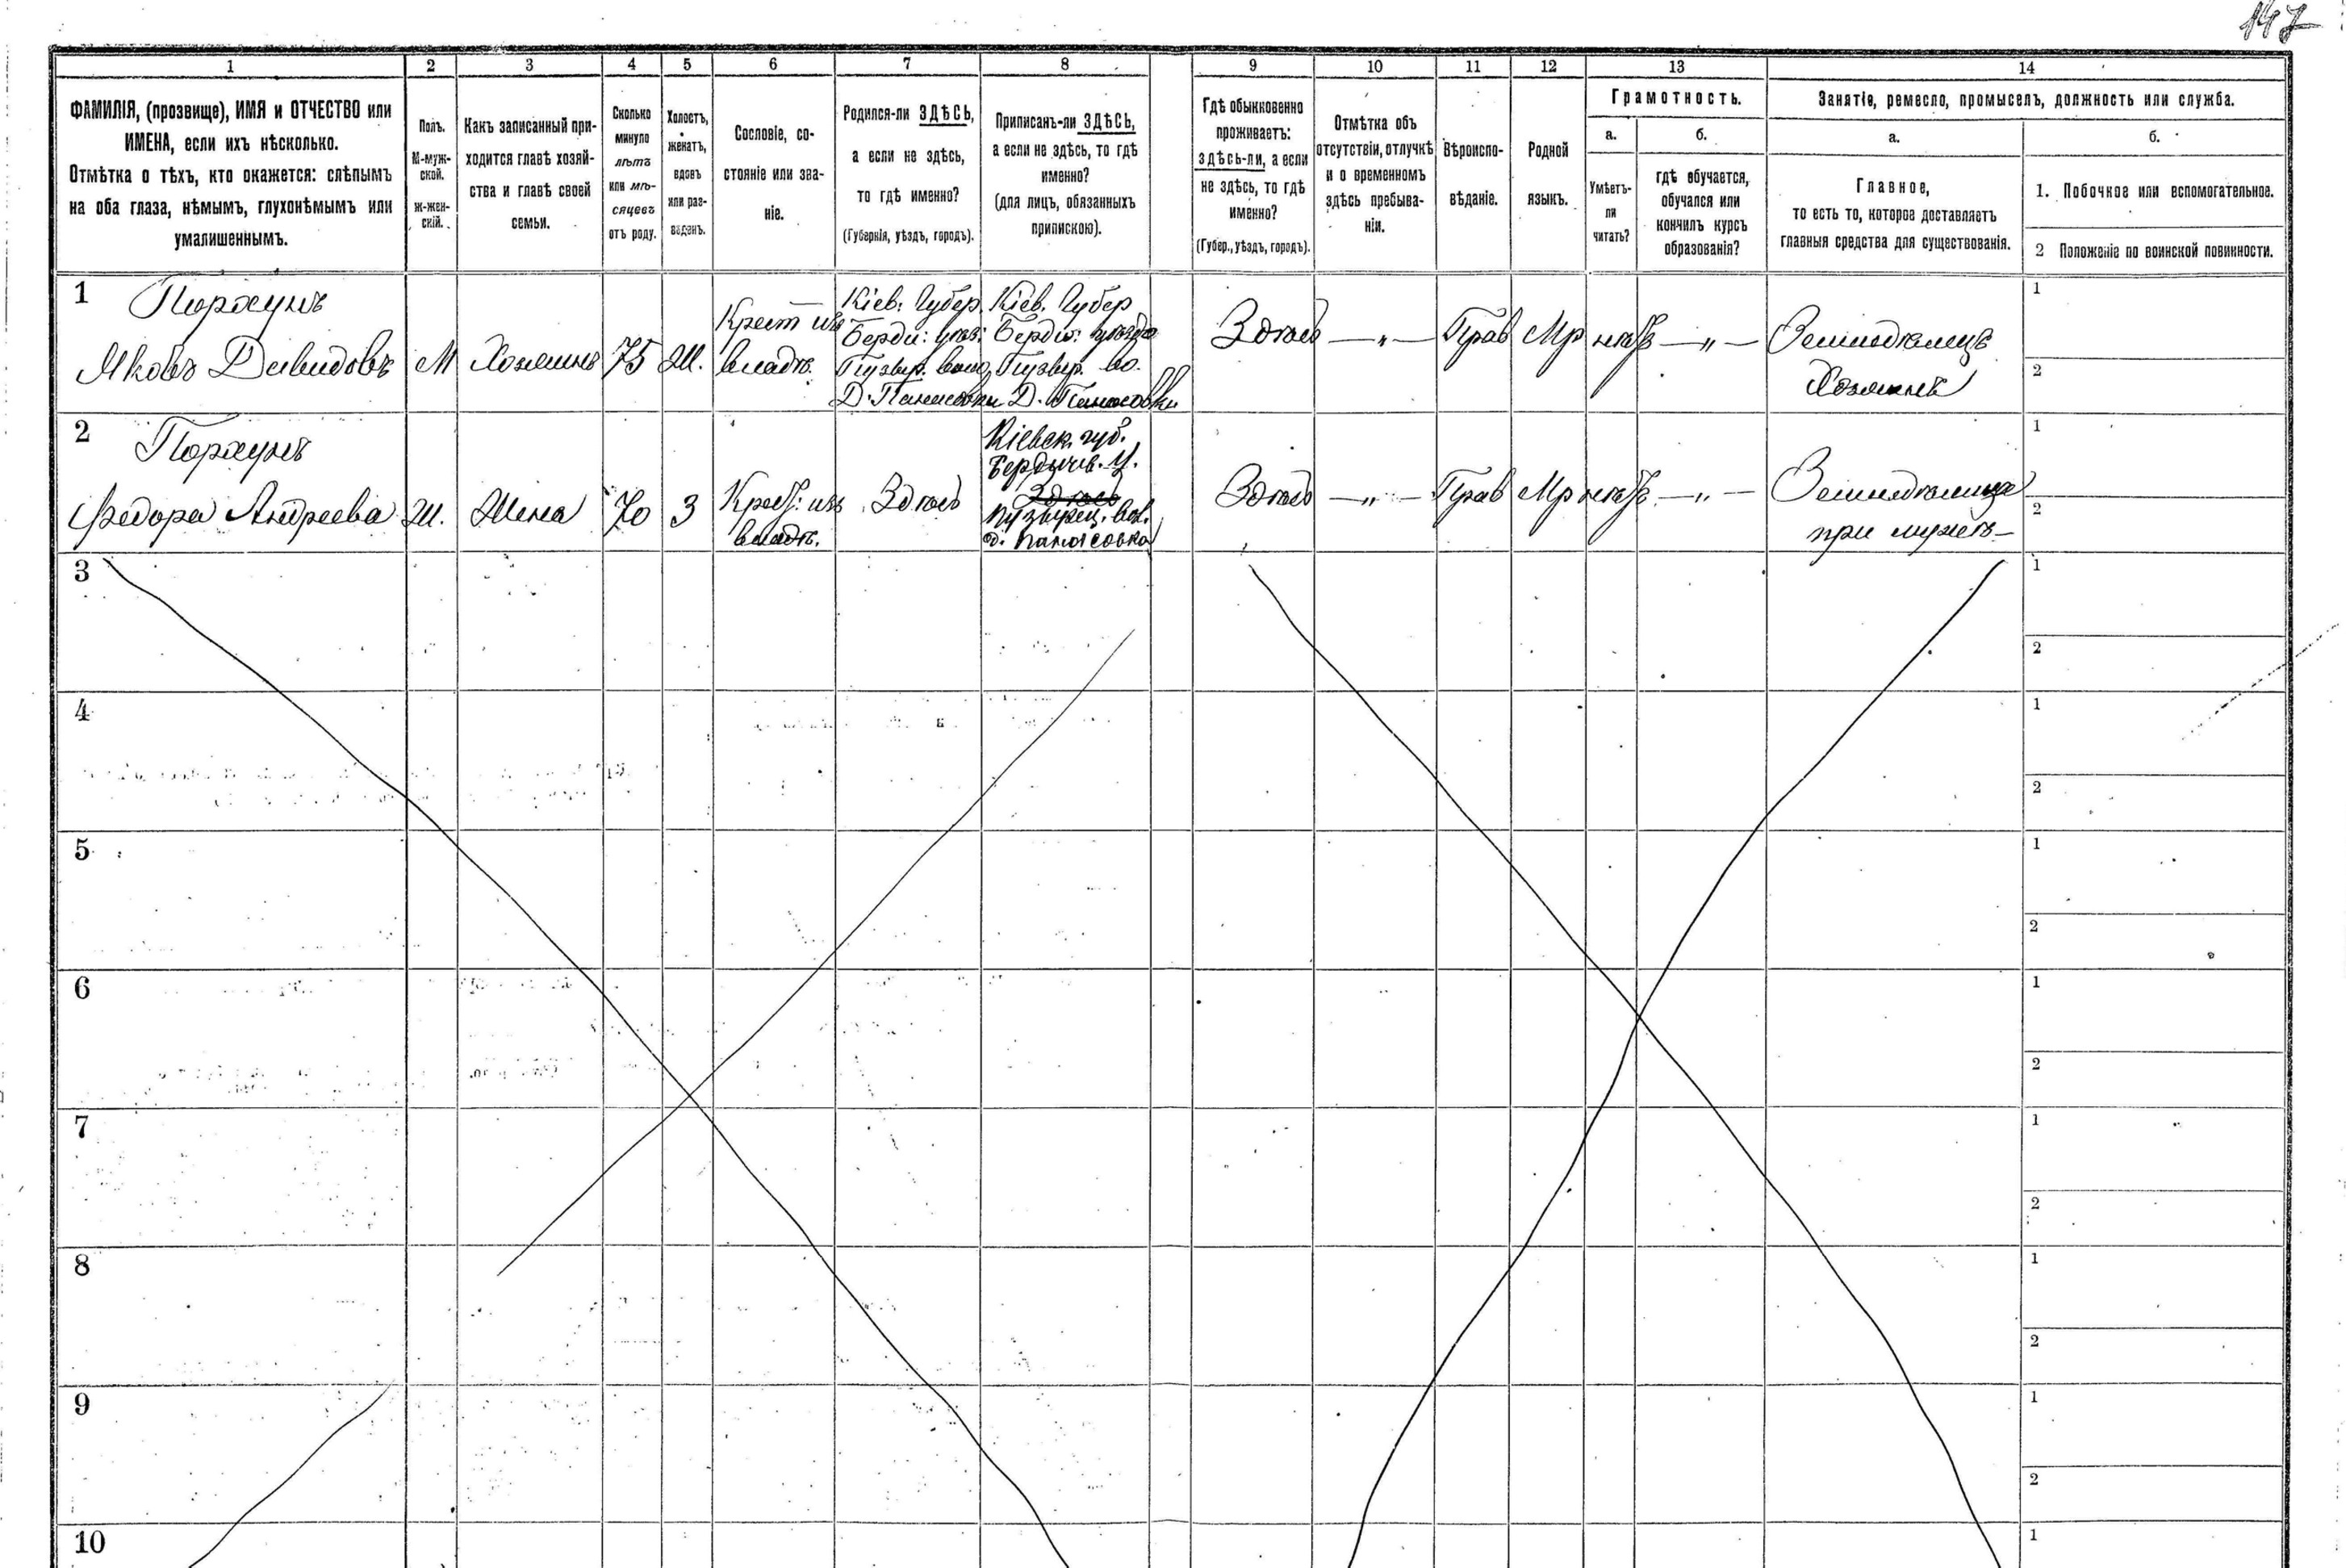 147
1
2
3
4
5
6
7
8
9
10
11
12
13
14
ФАМИЛІЯ, (прозвище), ИМЯ и ОТЧЕСТВО или
ИМЕНА, если ихъ нѣсколько.
Отмѣтка о тѣхъ, кто окажется: слѣпымъ
на оба глаза, нѣмымъ, глухонѣмымъ или
умалишеннымъ.
Полъ.
М-муж-
ской.
ж-жен-
скій.
Какъ записанный при-
ходится главѣ хозяй-
ства и главѣ своей
семьи.
Сколько
минуло
лѣтъ
или мѣ-
сяцевъ
отъ роду.
Холостъ,
женатъ,
вдовъ
или раз-
веденъ.
Сословіе, со-
стояніе или зва-
ніе.
Родился-ли ЗДѢСЬ,
а если не здѣсь,
то гдѣ именно?
(Губернія, уѣздъ, городъ).
Приписанъ-ли ЗДѢСЬ,
а если не здѣсь, то гдѣ
именно?
(для лицъ, обязанныхъ
припискою).
Гдѣ обыкновенно
проживаетъ:
здѣсь-ли, а если
не здѣсь, то гдѣ
именно?
(Губер., уѣздъ, городъ).
Отмѣтка объ
отсутствіи, отлучкѣ
и о временномъ
здѣсь пребыва-
ніи.
Вѣроиспо-
вѣданіе.
Родной
языкъ.
Грамотность.
а.
Умѣетъ-
ли
читать?
б.
гдѣ обучается,
обучался или
кончилъ курсъ
образованія?
Занятіе, ремесло, промыселъ, должность или служба.
а.
Главное,
то есть то, которое доставляетъ
главныя средства для существованія.
б.
1. Побочное или вспомогательное.
2 Положеніе по воинской повинности.
1
Порхунъ
Яковъ Давидовъ
М
Хозяинъ
75
Ж.
Крест изъ
владѣ.
Кіев: Губер
Берди: уѣз:
Пузыр. воло
Д. Панасовки
Кіев. Губер
Берди: уѣзда
Пузыр. во.
Д. Панасовки
Здѣсь
— „ —
Прав
Мр
нѣтъ
— „ —
Земледѣлецъ
Хозяинъ
1
2
2
Порхунъ
Федора Андреева
Ж.
Жена
70
З
Крест: изъ
владѣ.
Здѣсь
Кіевск. губ.
Бердичив. У.
Здѣсь
Пузырец. вол.
д. Панасовка
Здѣсь
— „ —
Прав
Мр
нѣтъ
— „ —
Земледѣлица
при мужѣ —
1
2
3
1
2
4
1
2
5
1
2
6
1
2
7
1
2
8
1
2
9
1
2
10
1